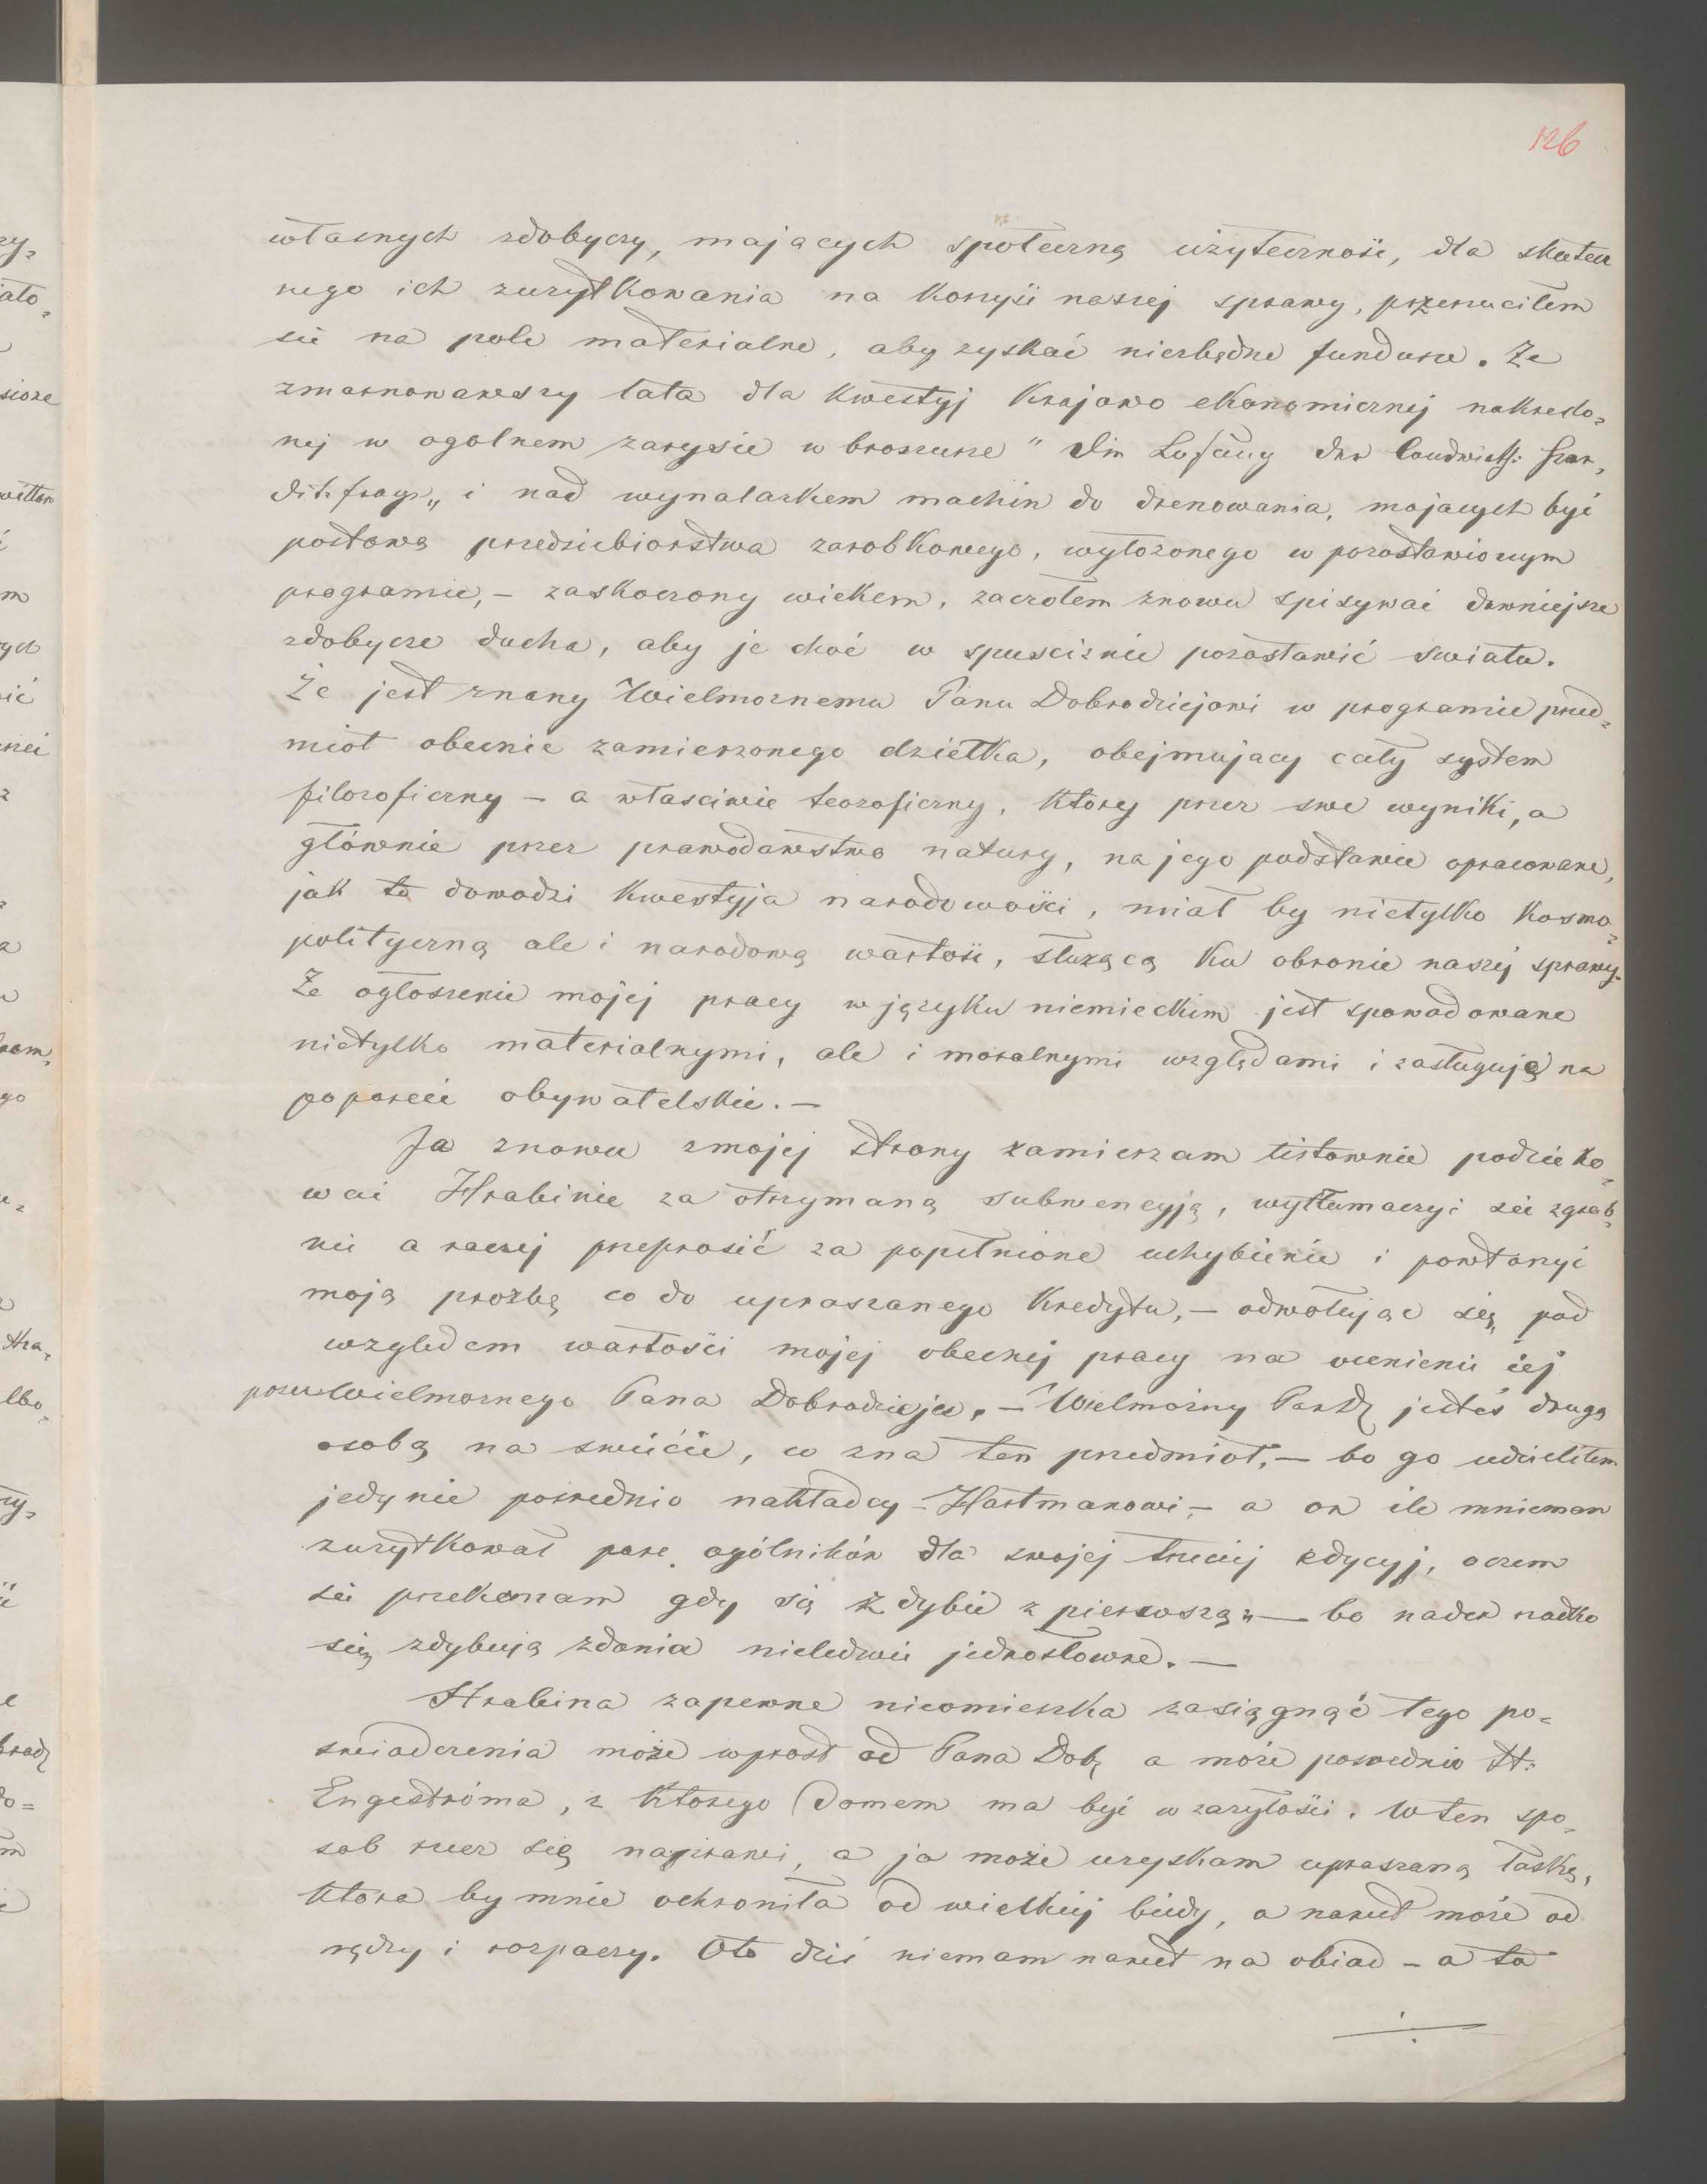 126
własnych zdobyczy, mających społeczną użyteczność, dla skutecz
nego ich zużytkowania na korzyść naszej sprawy, przerzuciłem
się na pole materialne, aby zyskać niezbędne fundusze. Że
zmarnowawszy lata dla kwestyj krajowo ekonomicznej nakreślo=
nej w ogolnem zarysie w broszurze " Die Lösung der landwirths: Kre=
ditfrage „ i nad wynalazkem machin do drenowania, mających być
postawą przedsiebiorstwa zarobkowego, wyłożonego w pozostawionym
programie, – zaskoczony wiekem, zaczołem znowu spisywać dawniejsze
zdobycze ducha, aby je choć w spusciznie pozostawić swiatu.
Że jest znany Wielmoznemu Panu Dobrodziejowi w programie przed=
miot obecnie zamierzonego dziełka, obejmujacy cały system
filozoficzny – a własciwie teozoficzny, ktory przez swe wyniki, a
głównie przez prawodawstwo natury, na jego podstawie opracowane,
jak to dowodzi kwestyja narodowości, miał by nietylko kosmo=
polityczną ale i narodową wartość, służącą ku obronie naszej sprawy.
Że ogłoszenie mojej pracy w języku niemieckim jest spowodowane
nietylko materialnymi, ale i moralnymi względami i zasługuję na
poparcie obywatelskie. –
Ja znowu zmojej strony zamierzam listownie podzieko=
wać Hrabinie za otrzymaną subwencyją, wytłumaczyć sie zgrab=
nie a raczej przeprosić za popełnione uchybienie i powtorzyć
moją prozbę co do upraszanego kredytu, – odwołując się pod
wzgledem wartości mojej obecnej pracy na ocenienie jej
przez Wielmoznego Pana Dobrodzieja. – Wielmożny Pan D. jesteś drugą
osobą na swiecie, co zna ten przedmiot, – bo go udzieliłem
jedynie posrednio nakładcy – Hartmanowi, – a on ile mnieman
zużytkował pare ogólników dla swojej trzeciej edycyj, o czem
sie przekonam gdy się zdybie z pierwszą, – bo nader rzadko
się zdybują zdania nieledwie jednosłowne. –
Hrabina zapewne nieomieszka zasięgnąć tego po=
swiadczenia może wprost od Pana Dob. a może posrednio H:
Engeströma, z ktorego Domem ma być w zażyłości. W ten spo=
sob rzecz się naprawi, a ja może uzyskam upraszaną łaskę,
ktora by mnie ochroniła od wielkiej biedy, a nawet może od
nędzy i rozpaczy. Oto dziś niemam nawet na obiad – a to